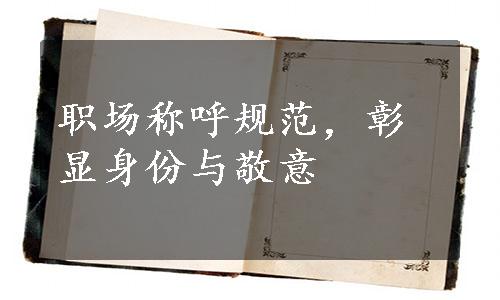 职场称呼规范，彰
显身份与敬意